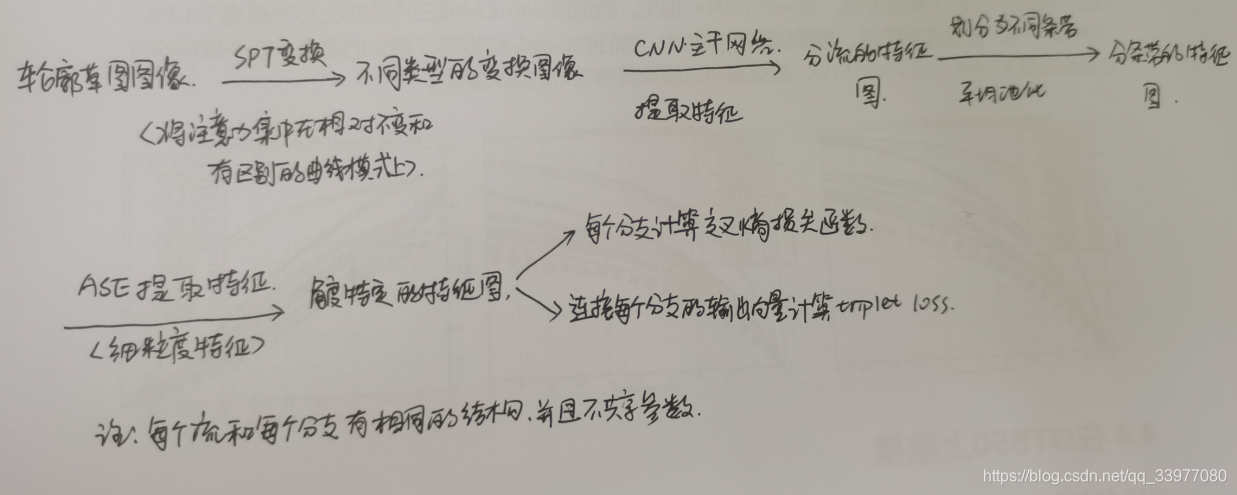 轮廓草图图像. SPT变换 不同类型的变换图像 CNN主干网络. 提取特征 分流的特征图. 划分为不同条带 平均池化 分条带的特征图.
<将注意力集中在相对不变和
有区别的曲线模式上>.
ASE提取特征. <细粒度特征> 角度特定的特征图.
每个分支计算交叉熵损失函数.
连接每个分支的输出向量计算triplet loss.
注:每个流和每个分支有相同的结构,并且不共享参数.
4.4在OTB50上结果
https://blog.csdn.net/qq_33977080